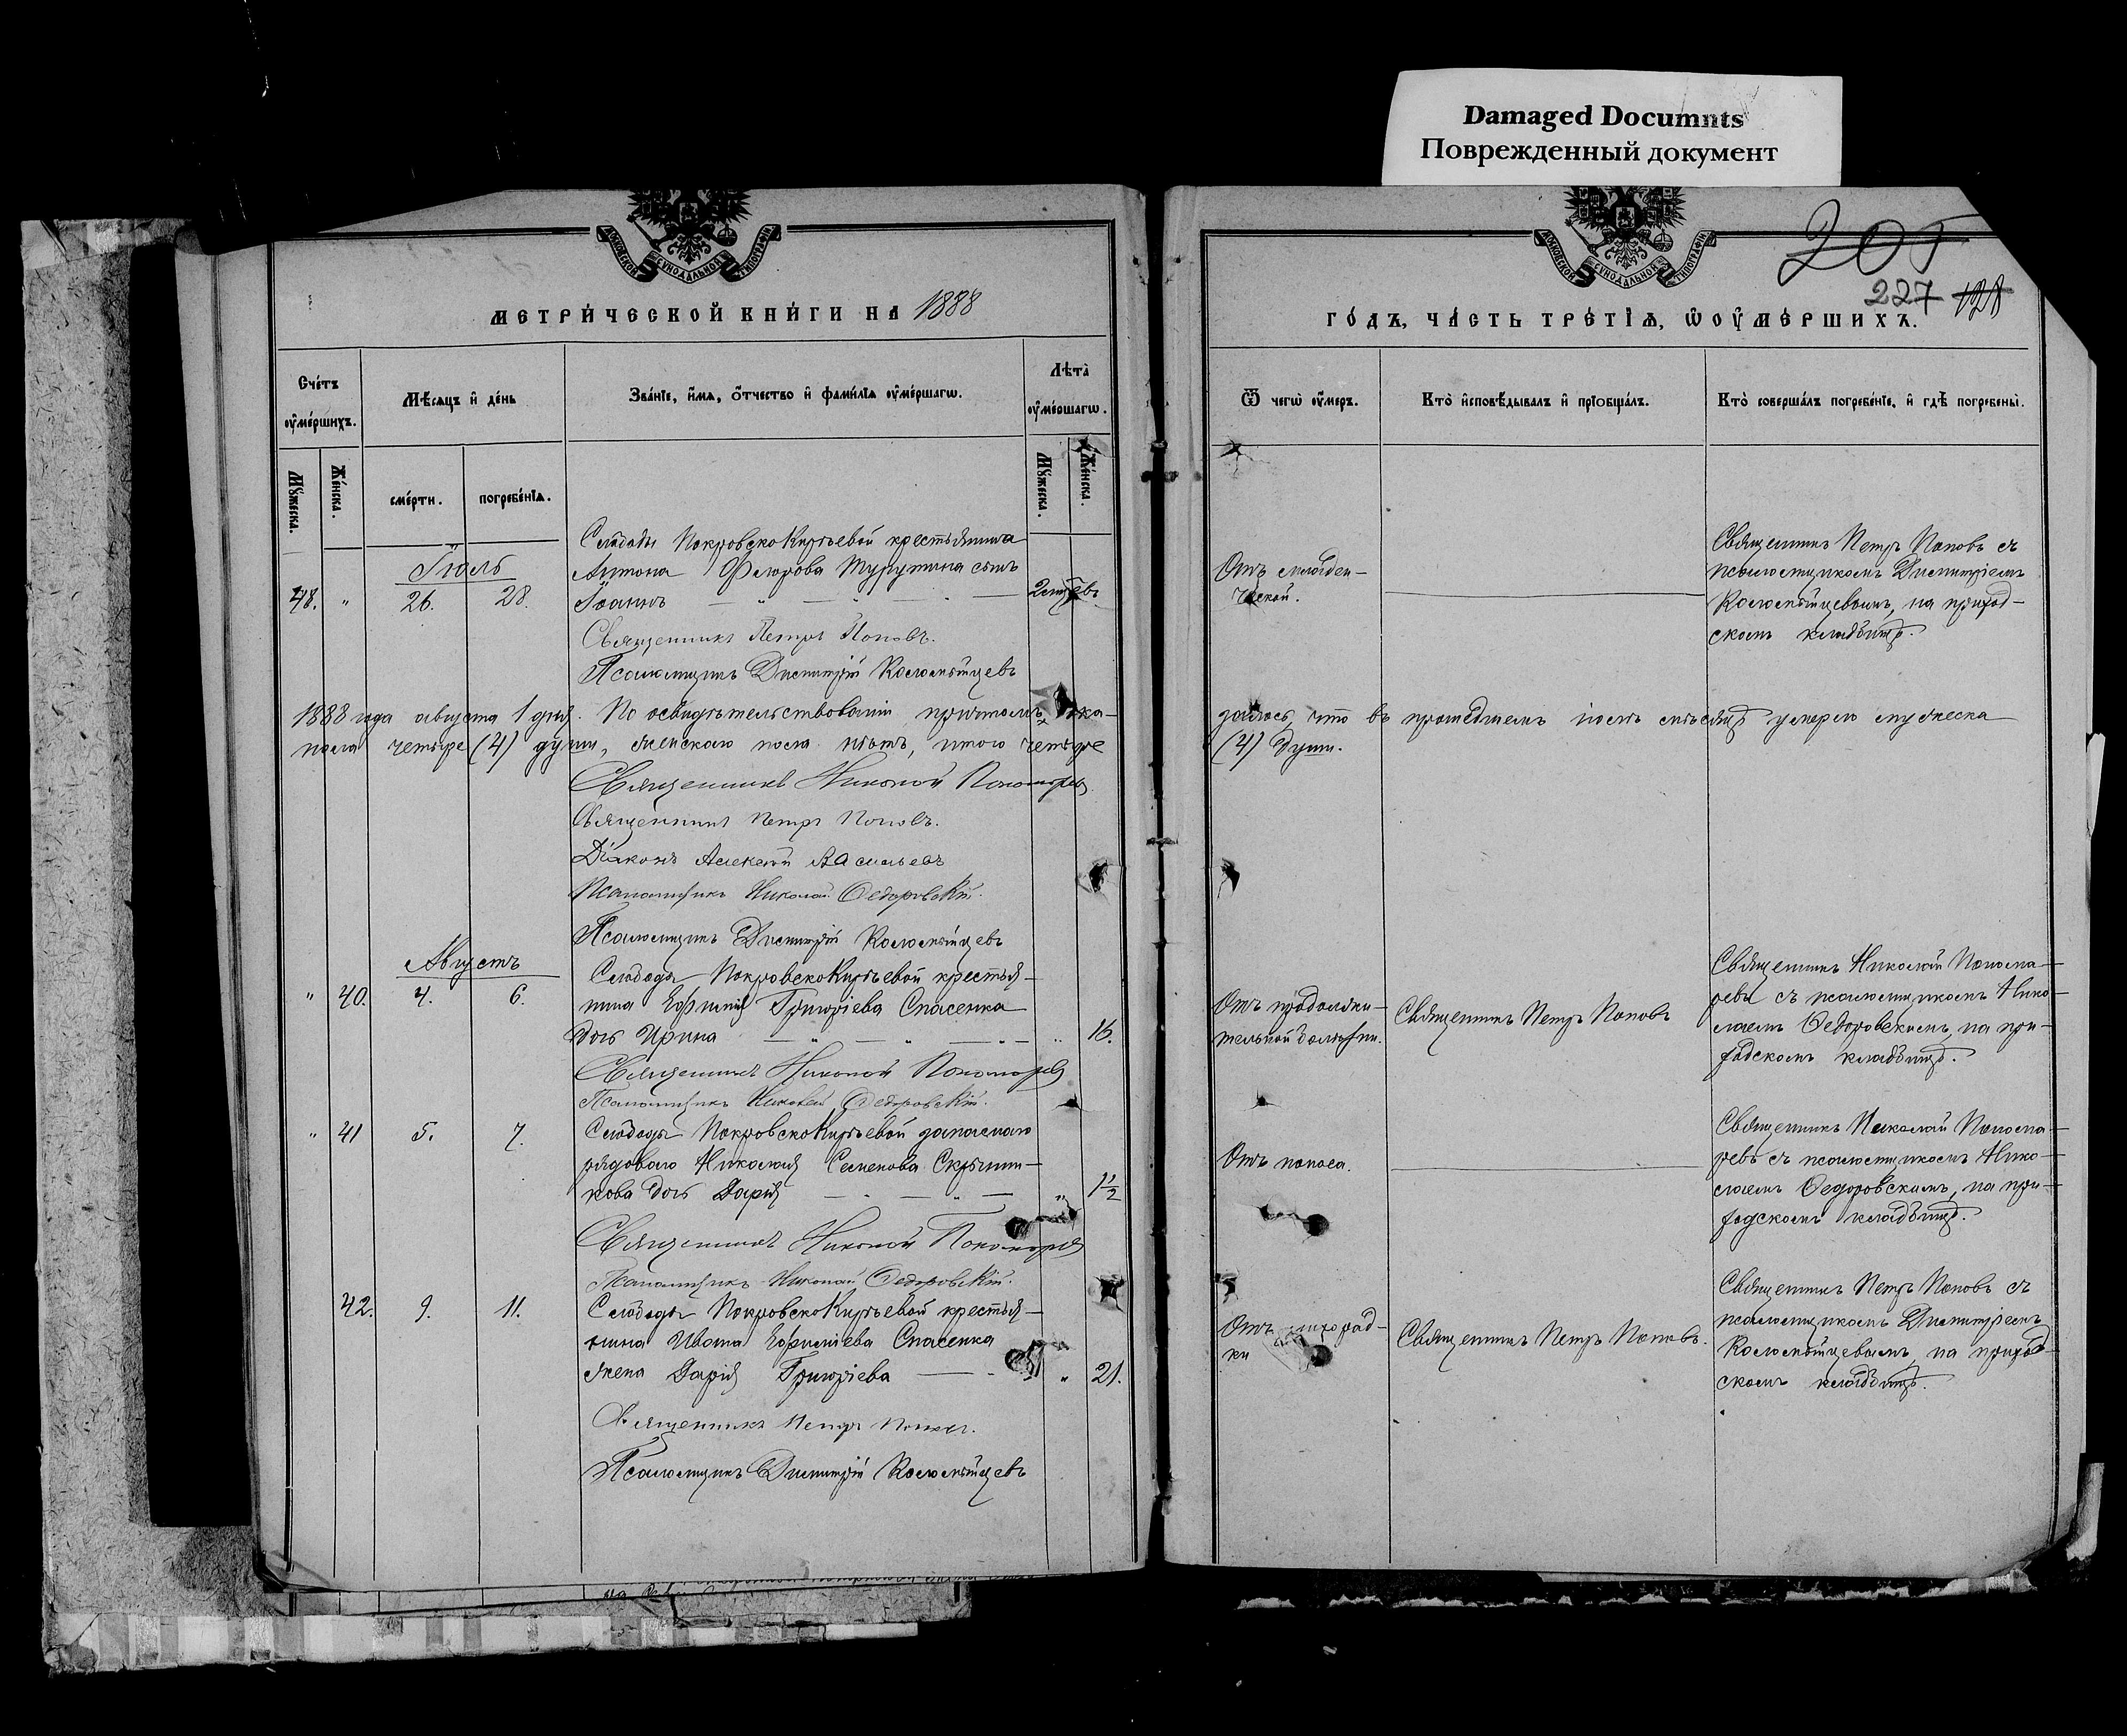 Damaged Documnts
Поврежденный документ
МОСКОВСКОЙ СѴНОДАЛЬНОЙ ТИПОГРАФІИ
МЕТРИ́ЧЕСКОЙ КНИ́ГИ НА 1888
Сче́тъ ᲂу҆ме́ршихъ.
Мѣ́сяцъ и҆ де́нь
Зва́нїе, и҆́мѧ, ѻ҆́тчество и҆ фами́лїѧ ᲂу҆ме́ршагѡ.
Лѣ́та ᲂу҆ме́ршагѡ.
Мꙋ́жеска.
Же́нска.
сме́рти.
погребе́нїѧ.
Мꙋ́жеска.
Же́нска.
Іюль
48. " 26. 28.
Слободы ПокровскоКиръевой крестьянина
Антона Ѳедорова сынъ
Іоаннъ
2 мцевъ
Священникъ Петръ Поповъ.
Псаломщикъ Димитрій Коломыйцевъ
1888 года августа 1 дня. По освидѣтельствованіи причтомъ ока-
пола четыре (4) души, женскаго пола нѣтъ, итого четыре
Священникъ Николай Пономаревъ
Священникъ Петръ Поповъ.
Діаконъ Алексій Васильевъ
Псаломщикъ Николай Ѳедоровскій.
Псаломщикъ Димитрій Коломыйцевъ
Августъ
" 40. 4. 6.
Слободы ПокровскоКиръевой крестья-
нина Ефимія Григоріева Спасенка
дочь Ирина
" 16.
Священникъ Николай Пономаревъ
Псаломщикъ Николай Ѳедоровскій.
" 41 5. 7.
Слободы ПокровскоКиръевой запаснаго
рядового Николая Семенова Скрынни-
кова дочь Дарія
" 1 1/2
Священникъ Николай Пономаревъ
Псаломщикъ Николай Ѳедоровскій.
42. 9. 11.
Слободы ПокровскоКиръевой крестья-
нина Ивана Ефиміева Спасенка
жена Дарія Григоріева
" 21.
Священникъ Петръ Поповъ.
Псаломщикъ Димитрій Коломыйцевъ
МОСКОВСКОЙ СѴНОДАЛЬНОЙ ТИПОГРАФІИ
205
227 121
ГО́ДЪ, ЧА́СТЬ ТРЕ́ТІѦ, Ѡ ОУ҆МЕ́РШИХЪ.
Ѿ чегѡ̀ ᲂу҆́меръ.
Кто̀ и҆сповѣ́дывалъ и҆ прїобща́лъ.
Кто̀ соверша́лъ погребе́нїе, и҆ гдѣ̀ погребены̀.
Отъ младен-
ческой.
Священникъ Петръ Поповъ съ
псаломщикомъ Димитріемъ
Коломыйцевымъ, на приход-
скомъ кладбищѣ.
залось, что въ прошедшемъ іюлѣ мѣсяцѣ умерло мужеска
(4) душ.
Отъ продолжи-
тельной болѣзни.
Священникъ Петръ Поповъ
Священникъ Николай Понома-
ревъ съ псаломщикомъ Нико-
лаемъ Ѳедоровскимъ, на при-
ходскомъ кладбищѣ.
Отъ поноса.
Священникъ Николай Понома-
ревъ съ псаломщикомъ Нико-
лаемъ Ѳедоровскимъ, на при-
ходскомъ кладбищѣ.
Отъ лихорад-
ки
Священникъ Петръ Поповъ.
Священникъ Петръ Поповъ съ
псаломщикомъ Димитріемъ
Коломыйцевымъ, на приход-
скомъ кладбищѣ.